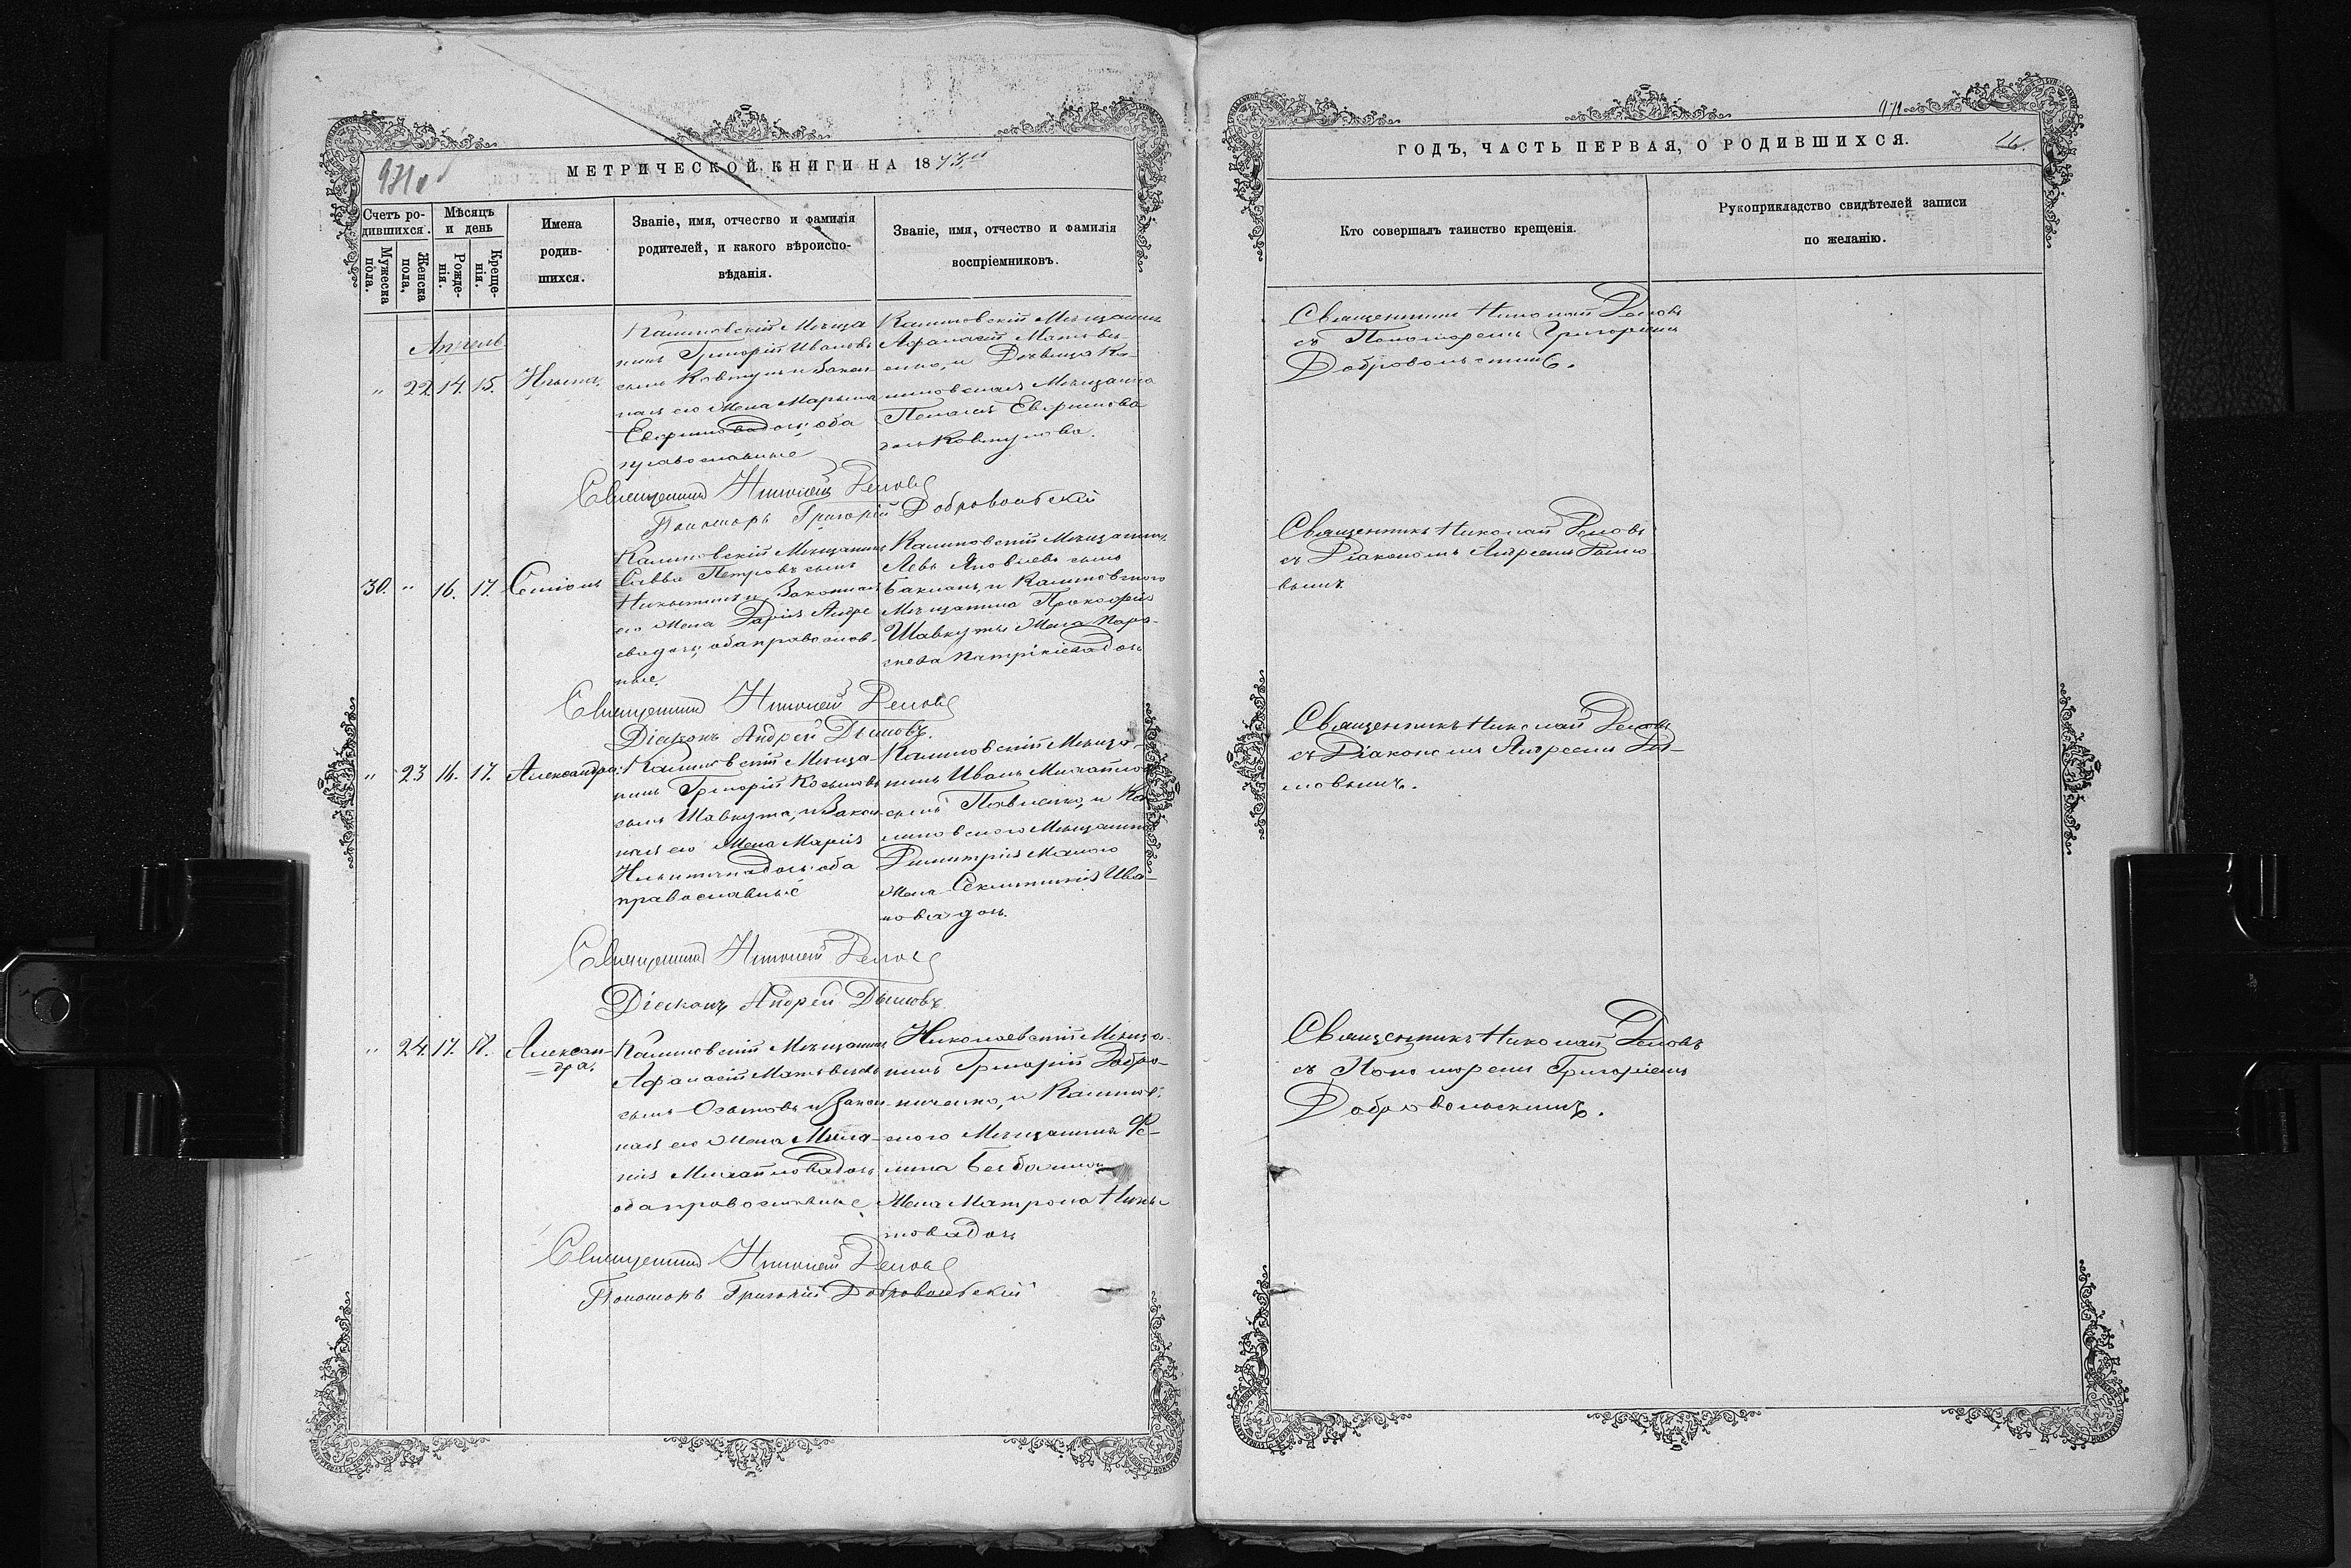 МЕТРИЧЕСКОЙ КНИГИ НА 1873й
Счетъ ро-
дившихся.
Мужеска
пола.
Женска
пола.
Мѣсяцъ
и день
Рожде-
нія.
Креще-
нія.
Имена
родив-
шихся.
Званіе, имя, отчество и фамилія
родителей, и какого вѣроиспо-
вѣданія.
Званіе, имя, отчество и фамилія
воспріемниковъ.
Апрѣль
" 22. 14. 15.
Калиновскій Мѣща
нинъ Григорій Ивановъ
сынъ Ковтунъ и Закон
ная его Жена Марьяна
дочь, оба
православные
Калиновскій Мѣщанинъ
Афанасій Матвѣ
енко, и Дѣвица Ка-
линовская Мѣщанка
Пелагія Евфимова
дочь Ковтунова.
Священникъ Николай
Пономарь Григорій Добровольскій
30. " 16. 17.
Калиновскій Мѣщанинъ
Савва Петровъ сынъ
и Законная
его Жена Дарія Андре
ева дочь, оба православ-
ные.
Калиновскій Мѣщанинъ
Левъ Яковлевъ сынъ
Бакланъ, и Калиновского
Мѣщанина Прокофія
Шавкуты Жена Пара-
скева дочь
Священникъ Николай
Діаконъ Андрей Дымовъ.
" 23 16. 17. Александра
Калиновскій Мѣща-
нинъ Григорій Козьмовъ
сынъ Шавкута, и Закон
ная его Жена Марія
дочь оба
православные
Калиновскій Мѣща-
нинъ Иванъ Михайловъ
сынъ Павленко, и Ка
линовского Мѣщанина
Димитрія Малого
Жена Ива-
нова дочь.
Священникъ Николай
Діаконъ Андрей Дымовъ
" 24. 17. Алексан-
дра.
Калиновскій Мѣщанинъ
Афанасій Матвѣевъ
сынъ и Закон
ная его Жена Мела-
нія Михайлова дочь
оба православные
Николаевскій Мѣща-
нинъ Григорій Добро-
ниченко, и Калинов-
ского Мѣщанина
Жена Матрона Ники
това дочь
Священникъ Николай
Пономарь Григорій Добровольскій
ГОДЪ, ЧАСТЬ ПЕРВАЯ, О РОДИВШИХСЯ.
Кто совершалъ таинство крещенія.
Рукоприкладство свидѣтелей записи
по желанію.
Священникъ Николай
съ Пономаремъ Григоріемъ
Добровольскимъ.
Священникъ Николай
съ Діакономъ Андреемъ Дымо
вымъ
Священникъ Николай
съ Діакономъ Андреемъ Ды-
мовымъ.
Священникъ Николай
съ Пономаремъ Григоріемъ
Добровольскимъ.